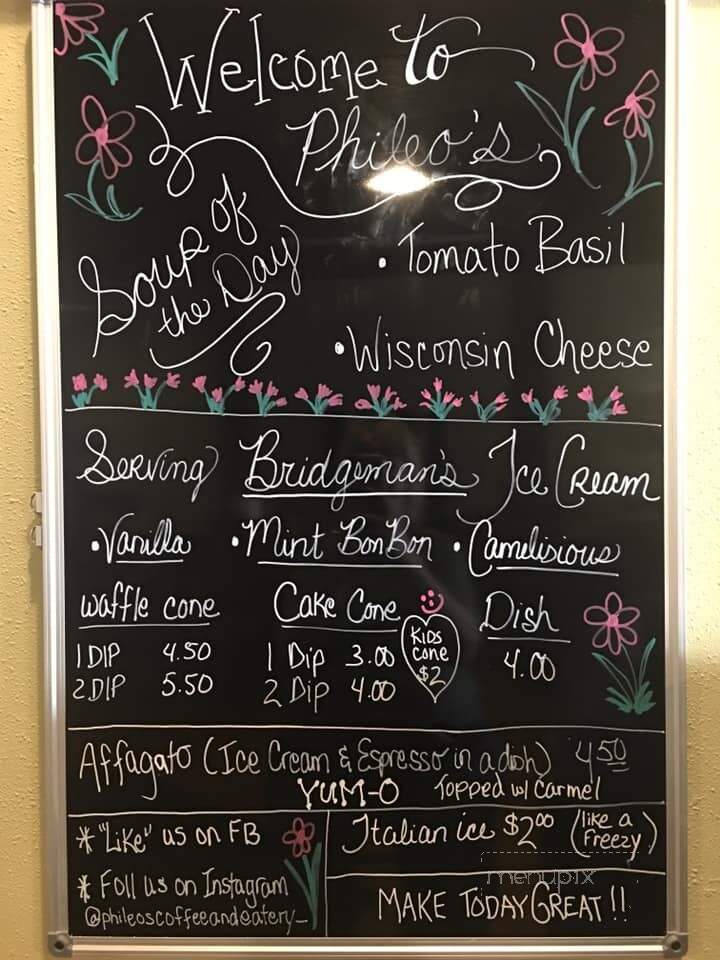 Welcome to
Phileo's
Soup of
the Day
• Tomato Basil
• Wisconsin Cheese
Serving Bridgeman's Ice Cream
• Vanilla • Mint BonBon • Camelisious
Waffle cone
1 DIP 4.50
2 DIP 5.50
Cake Cone
1 Dip 3.00
2 Dip 4.00
KiDS
cone
$2
Dish
4.00
Affagato (Ice Cream & Espresso in a dish) 4.50
YUM-O Topped w/ Carmel
* "Like" us on FB
* Foll us on Instagram
@phileoscoffeeandeatery_
Italian ice $2.00 (like a
Freezy)
menupix
MAKE TODAY GREAT!!